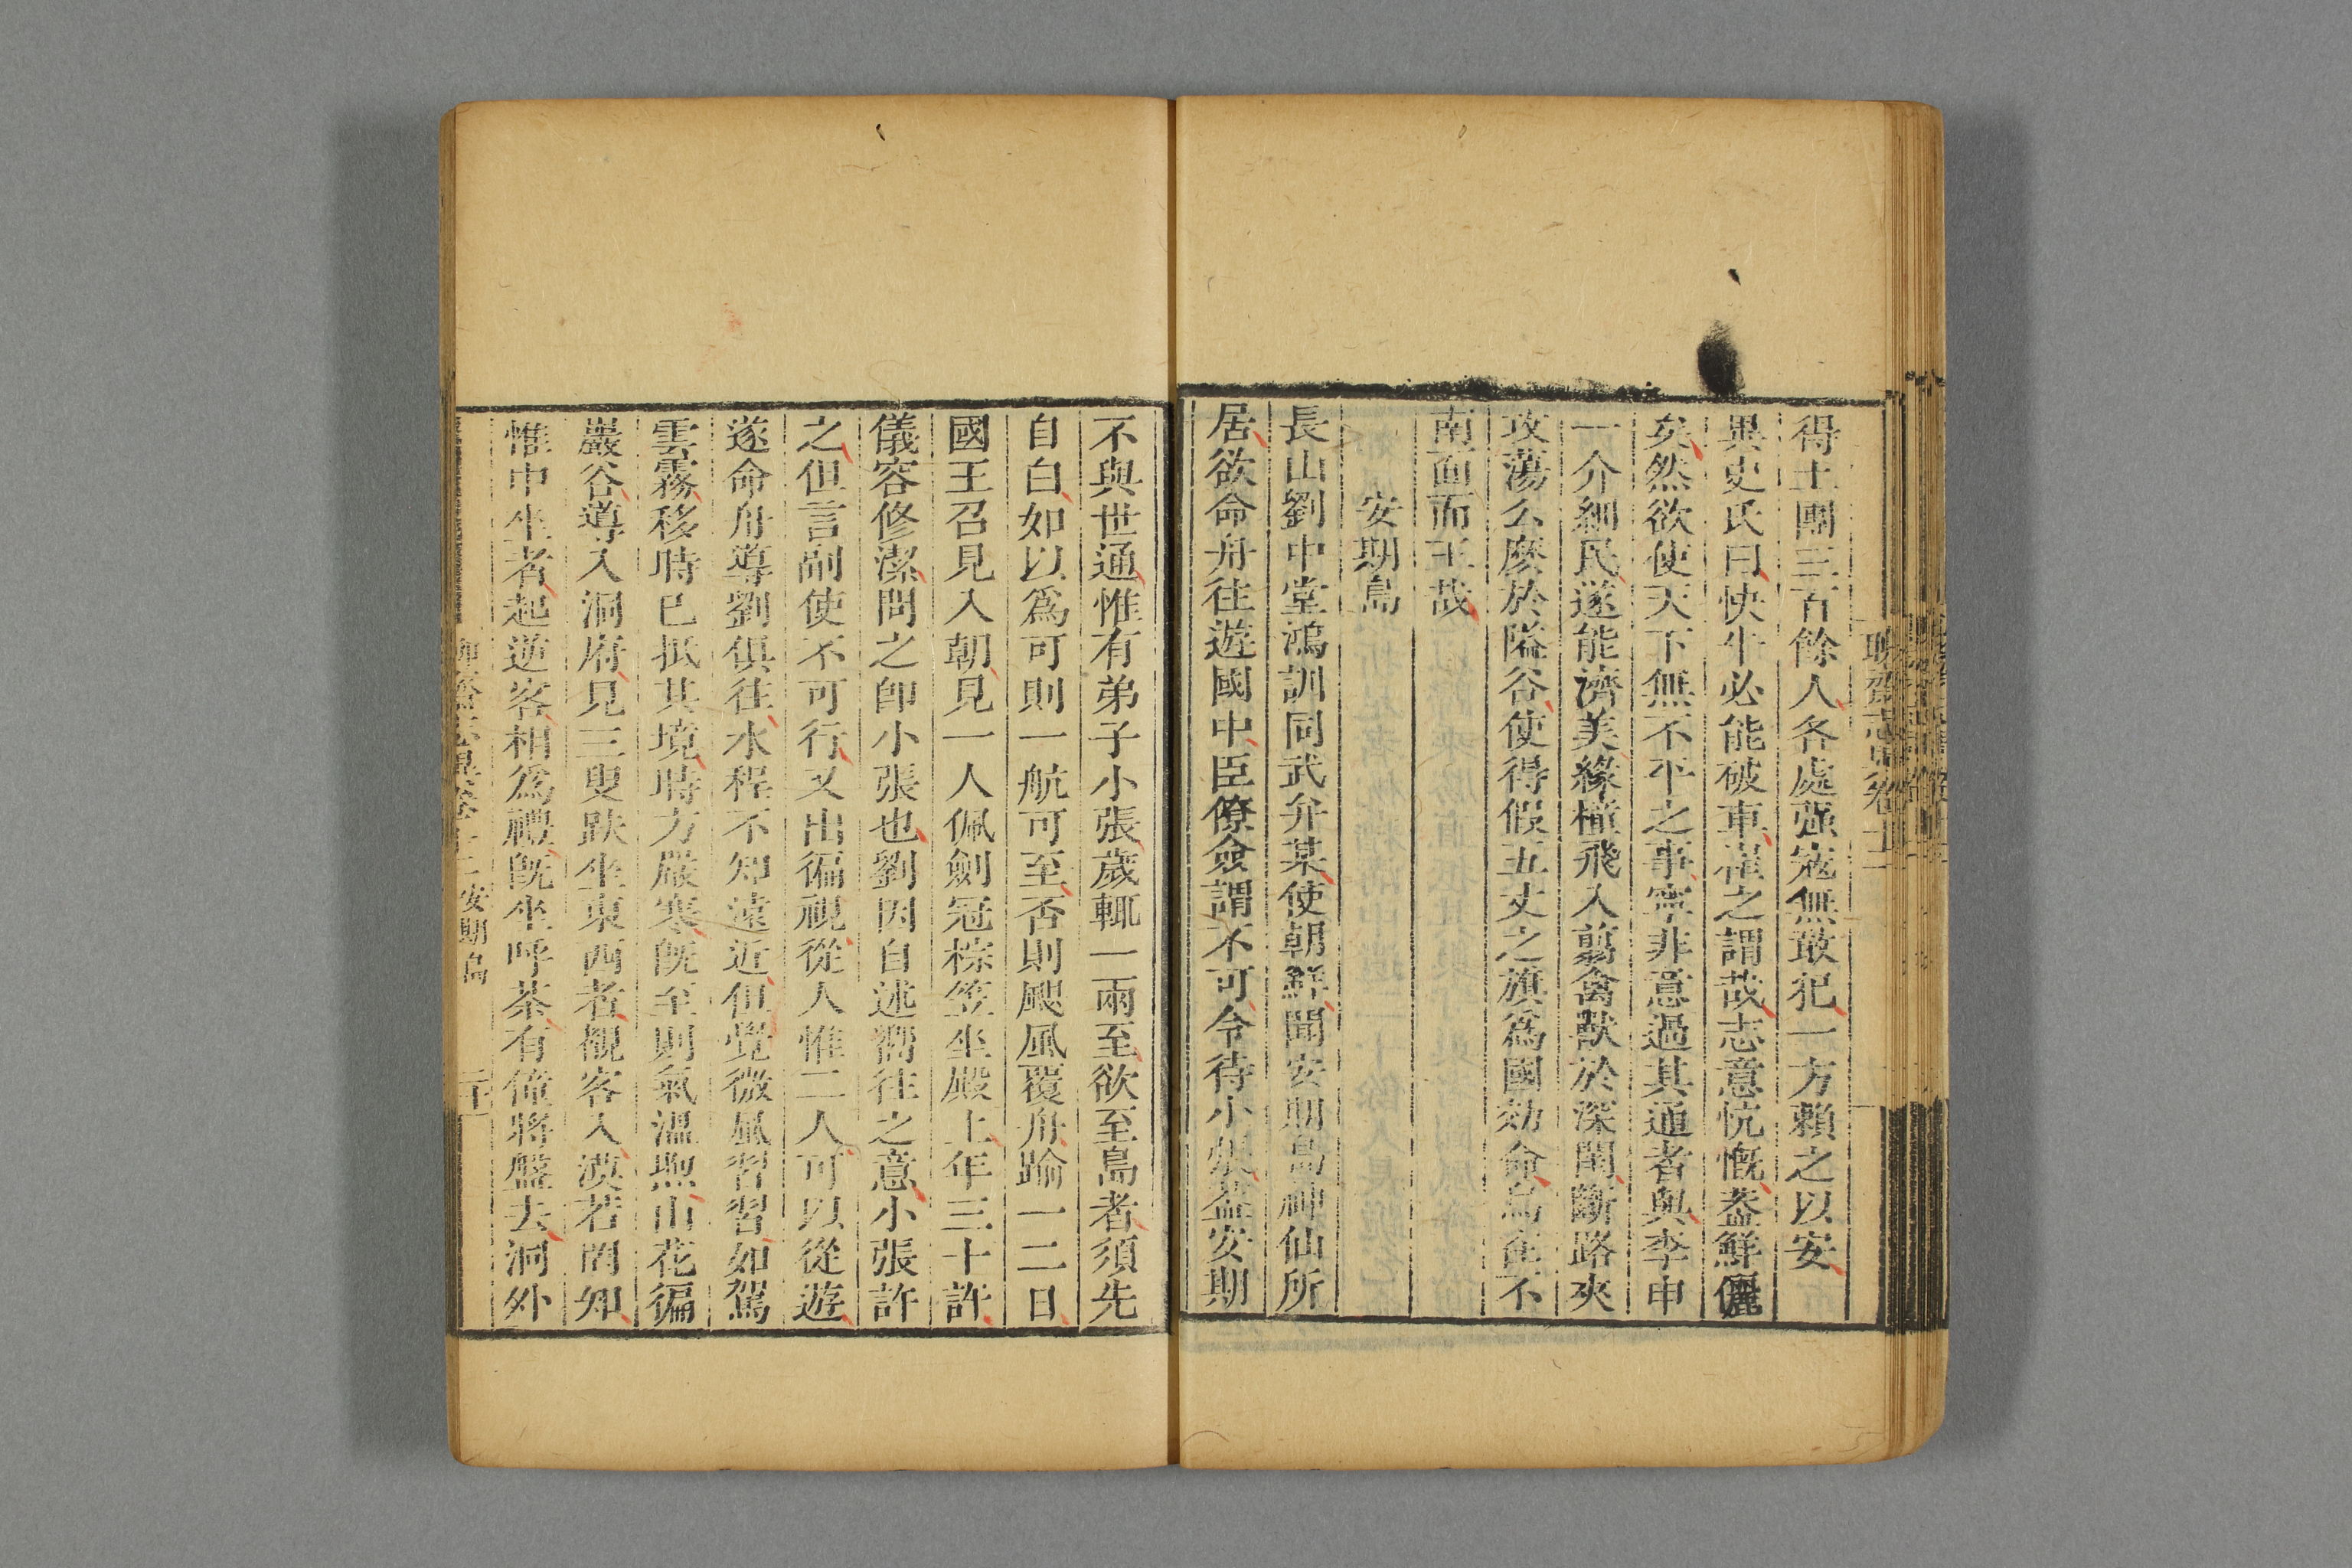 得士團三百餘人各處強寇無敢犯一方賴之以安
異史氏曰快牛必能破車崔之謂哉志意忼慨蓋鮮儷
矣然欲使天下無不平之事寧非意過其通者與李申
一介細民遂能濟美緣橦飛入翦禽獸於深閨斷路夾
攻蕩么麽於隘谷使得假五丈之旗爲國効命烏在不
南面而王哉
安期島
長山劉中堂鴻訓同武弁某使朝鮮聞安期島神仙所
居欲命舟往遊國中臣僚僉謂不可令待小張蓋安期
不與世通惟有弟子小張歲輒一兩至欲至島者須先
自白如以爲可則一航可至否則颶風覆舟踰一二日
國王召見入朝見一人佩劍冠棕笠坐殿上年三十許
儀容修潔問之卽小張也劉因自述嚮往之意小張許
之但言副使不可行又出徧視從人惟二人可以從遊
遂命舟導劉俱往水程不知遠近但覺微風習習如駕
雲霧移時已抵其境時方嚴寒旣至則氣溫煦山花徧
巖谷導入洞府見三叟趺坐東西者覩客入漠若罔知
惟中坐者起逆客相爲禮旣坐呼茶有僮將盤去洞外
聊齋志異卷十二 安期島 二十一